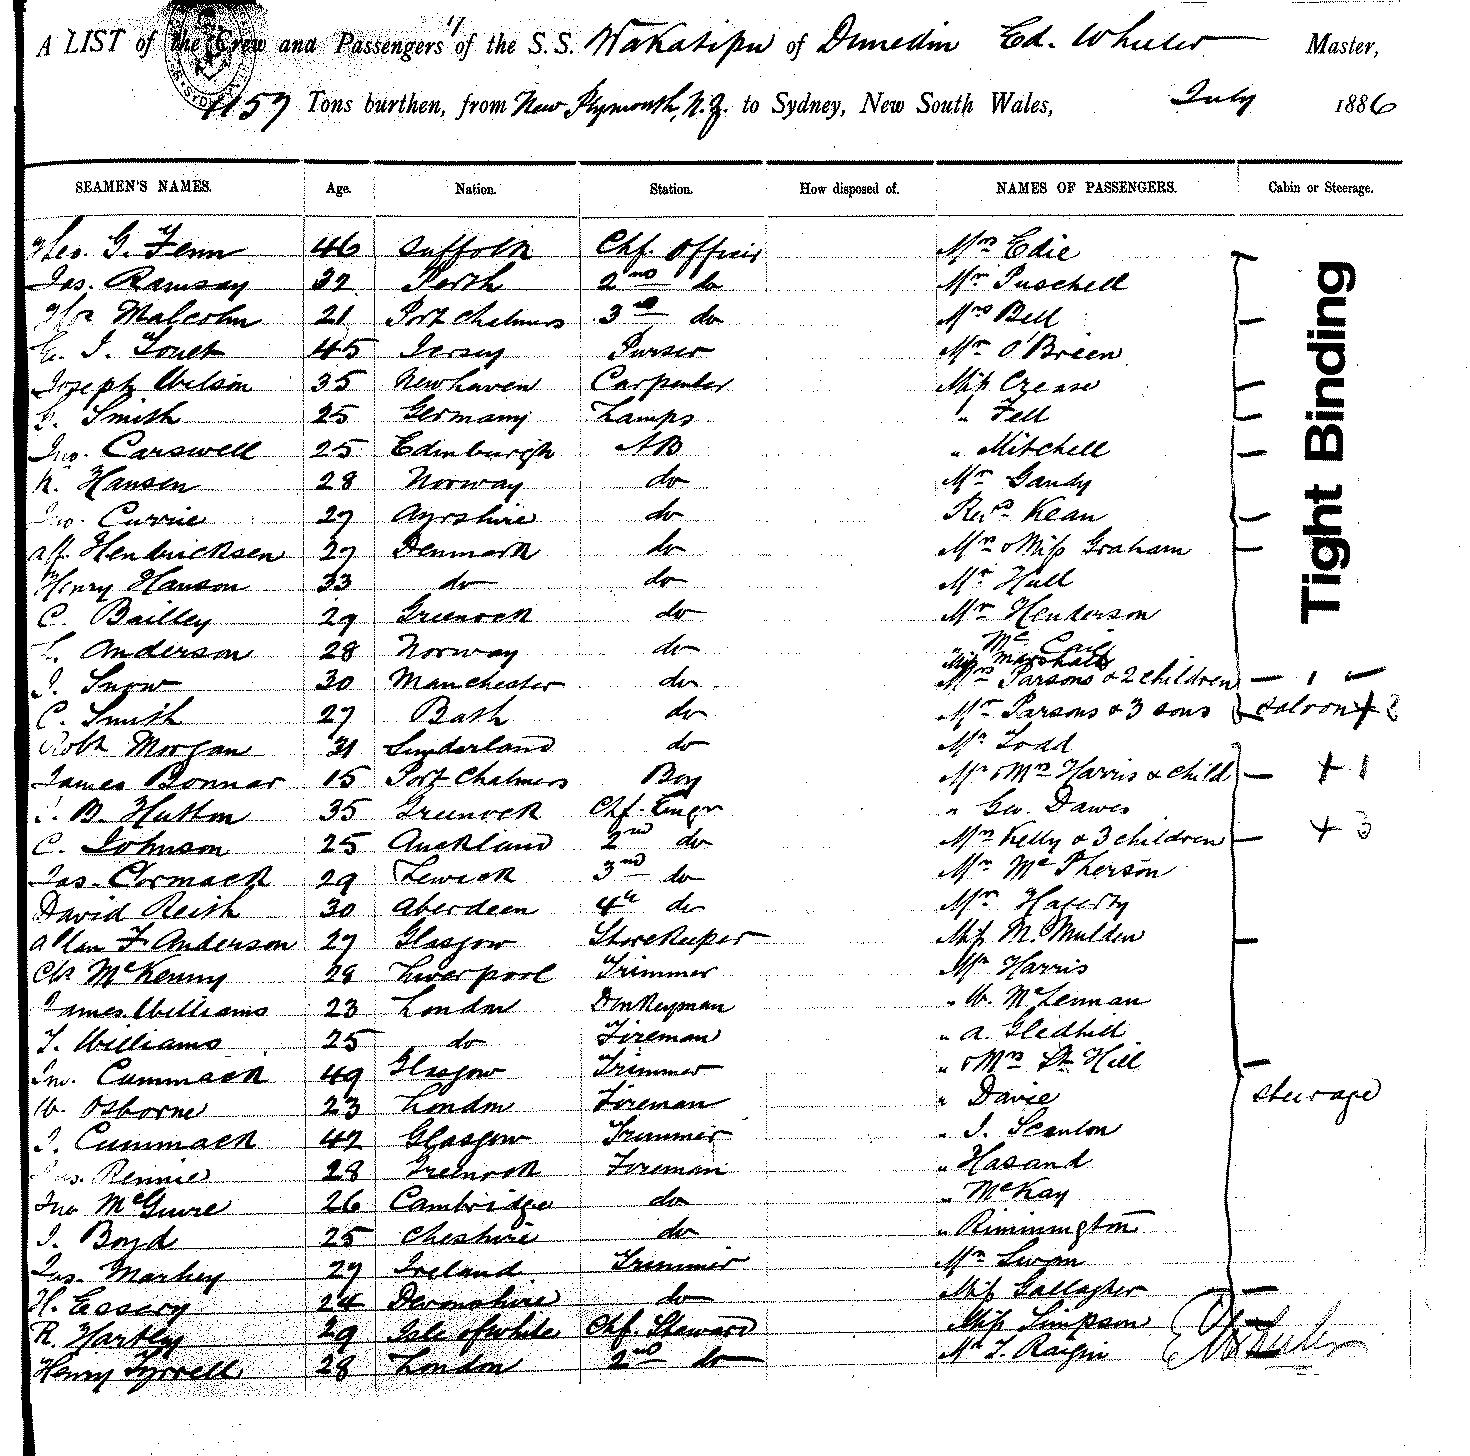 A LIST of the Crew and Passengers of the S.S. Wakatipu of Dunedin Ed. Wheeler Master,
1157 Tons burthen, from New Plymouth, N.Z. to Sydney, New South Wales, July 1886
SEAMEN'S NAMES. Age. Nation. Station. How disposed of. NAMES OF PASSENGERS. Cabin or Steerage.
Geo. G. Fenn 46 Suffolk Chf. Officer Mrs Edie
Jas. Ramsay 32 Perth 2nd do Mr Puschell
Malcolm 21 Port Chalmers 3rd do Mrs Bell
45 Jersey Purser Mr O'Breen
Joseph Wilson 35 Newhaven Carpenter Miss Crease
Smith 25 Germany Lamps " Fell
Jno. Carswell 25 Edinburgh AB " Mitchell
Hansen 28 Norway do Mr Gandy
Jno. Currie 27 Ayrshire do Revd Kean
Alf. Hendricksen 27 Denmark do Mr & Miss Graham
Henry Hanson 33 do do Mr Hull
C. Bailley 29 Greenock do Mr Henderson
Anderson 28 Norway do " Mc
Miss Marshall
J. Snow 30 Manchester do Mrs Parsons & 2 children
C. Smith 27 Bath do Mr Parsons & 3 sons Saloon + 8
Robt Morgan 31 Sunderland do Mr Todd
James Bonnar 15 Port Chalmers Boy Mr & Mrs Harris & child + 1
B. Hutton 35 Greenock Chf. Engr " Geo. Dawes
C. Johnson 25 Auckland 2nd do Mrs Kelly & 3 children + 3
Jas. Cormack 29 Lewick 3rd do Mr McPherson
David Reith 30 Aberdeen 4th do Mr Hagerty
Allan F. Anderson 27 Glasgow Storekeeper Miss M. Mulden
Chs McKenny 28 Liverpool Trimmer Mr Harris
James Williams 23 London Donkeyman " W. McLennan
T. Williams 25 do Fireman " A. Gledhill
Jno. Cummack 49 Glasgow Trimmer " & Mrs St Hill
W. Osborne 23 London Fireman " Davie Steerage
J. Cummack 42 Glasgow Trimmer " J. Scanlon
Rennie 28 Greenock Foreman " Hasand
Jno McGuire 26 Cambridge do " McKay
J. Boyd 25 Cheshire do " Riminington
Jas. Markey 27 Ireland Trimmer Mr Swan
H. Essery 24 Devonshire do Miss Gallagher
R. Hartley 29 Isle of White Chf. Steward Miss Simpson
Henry Tyrrell 28 London 2nd do Mr T. Raigin Ed Wheeler
Tight Binding